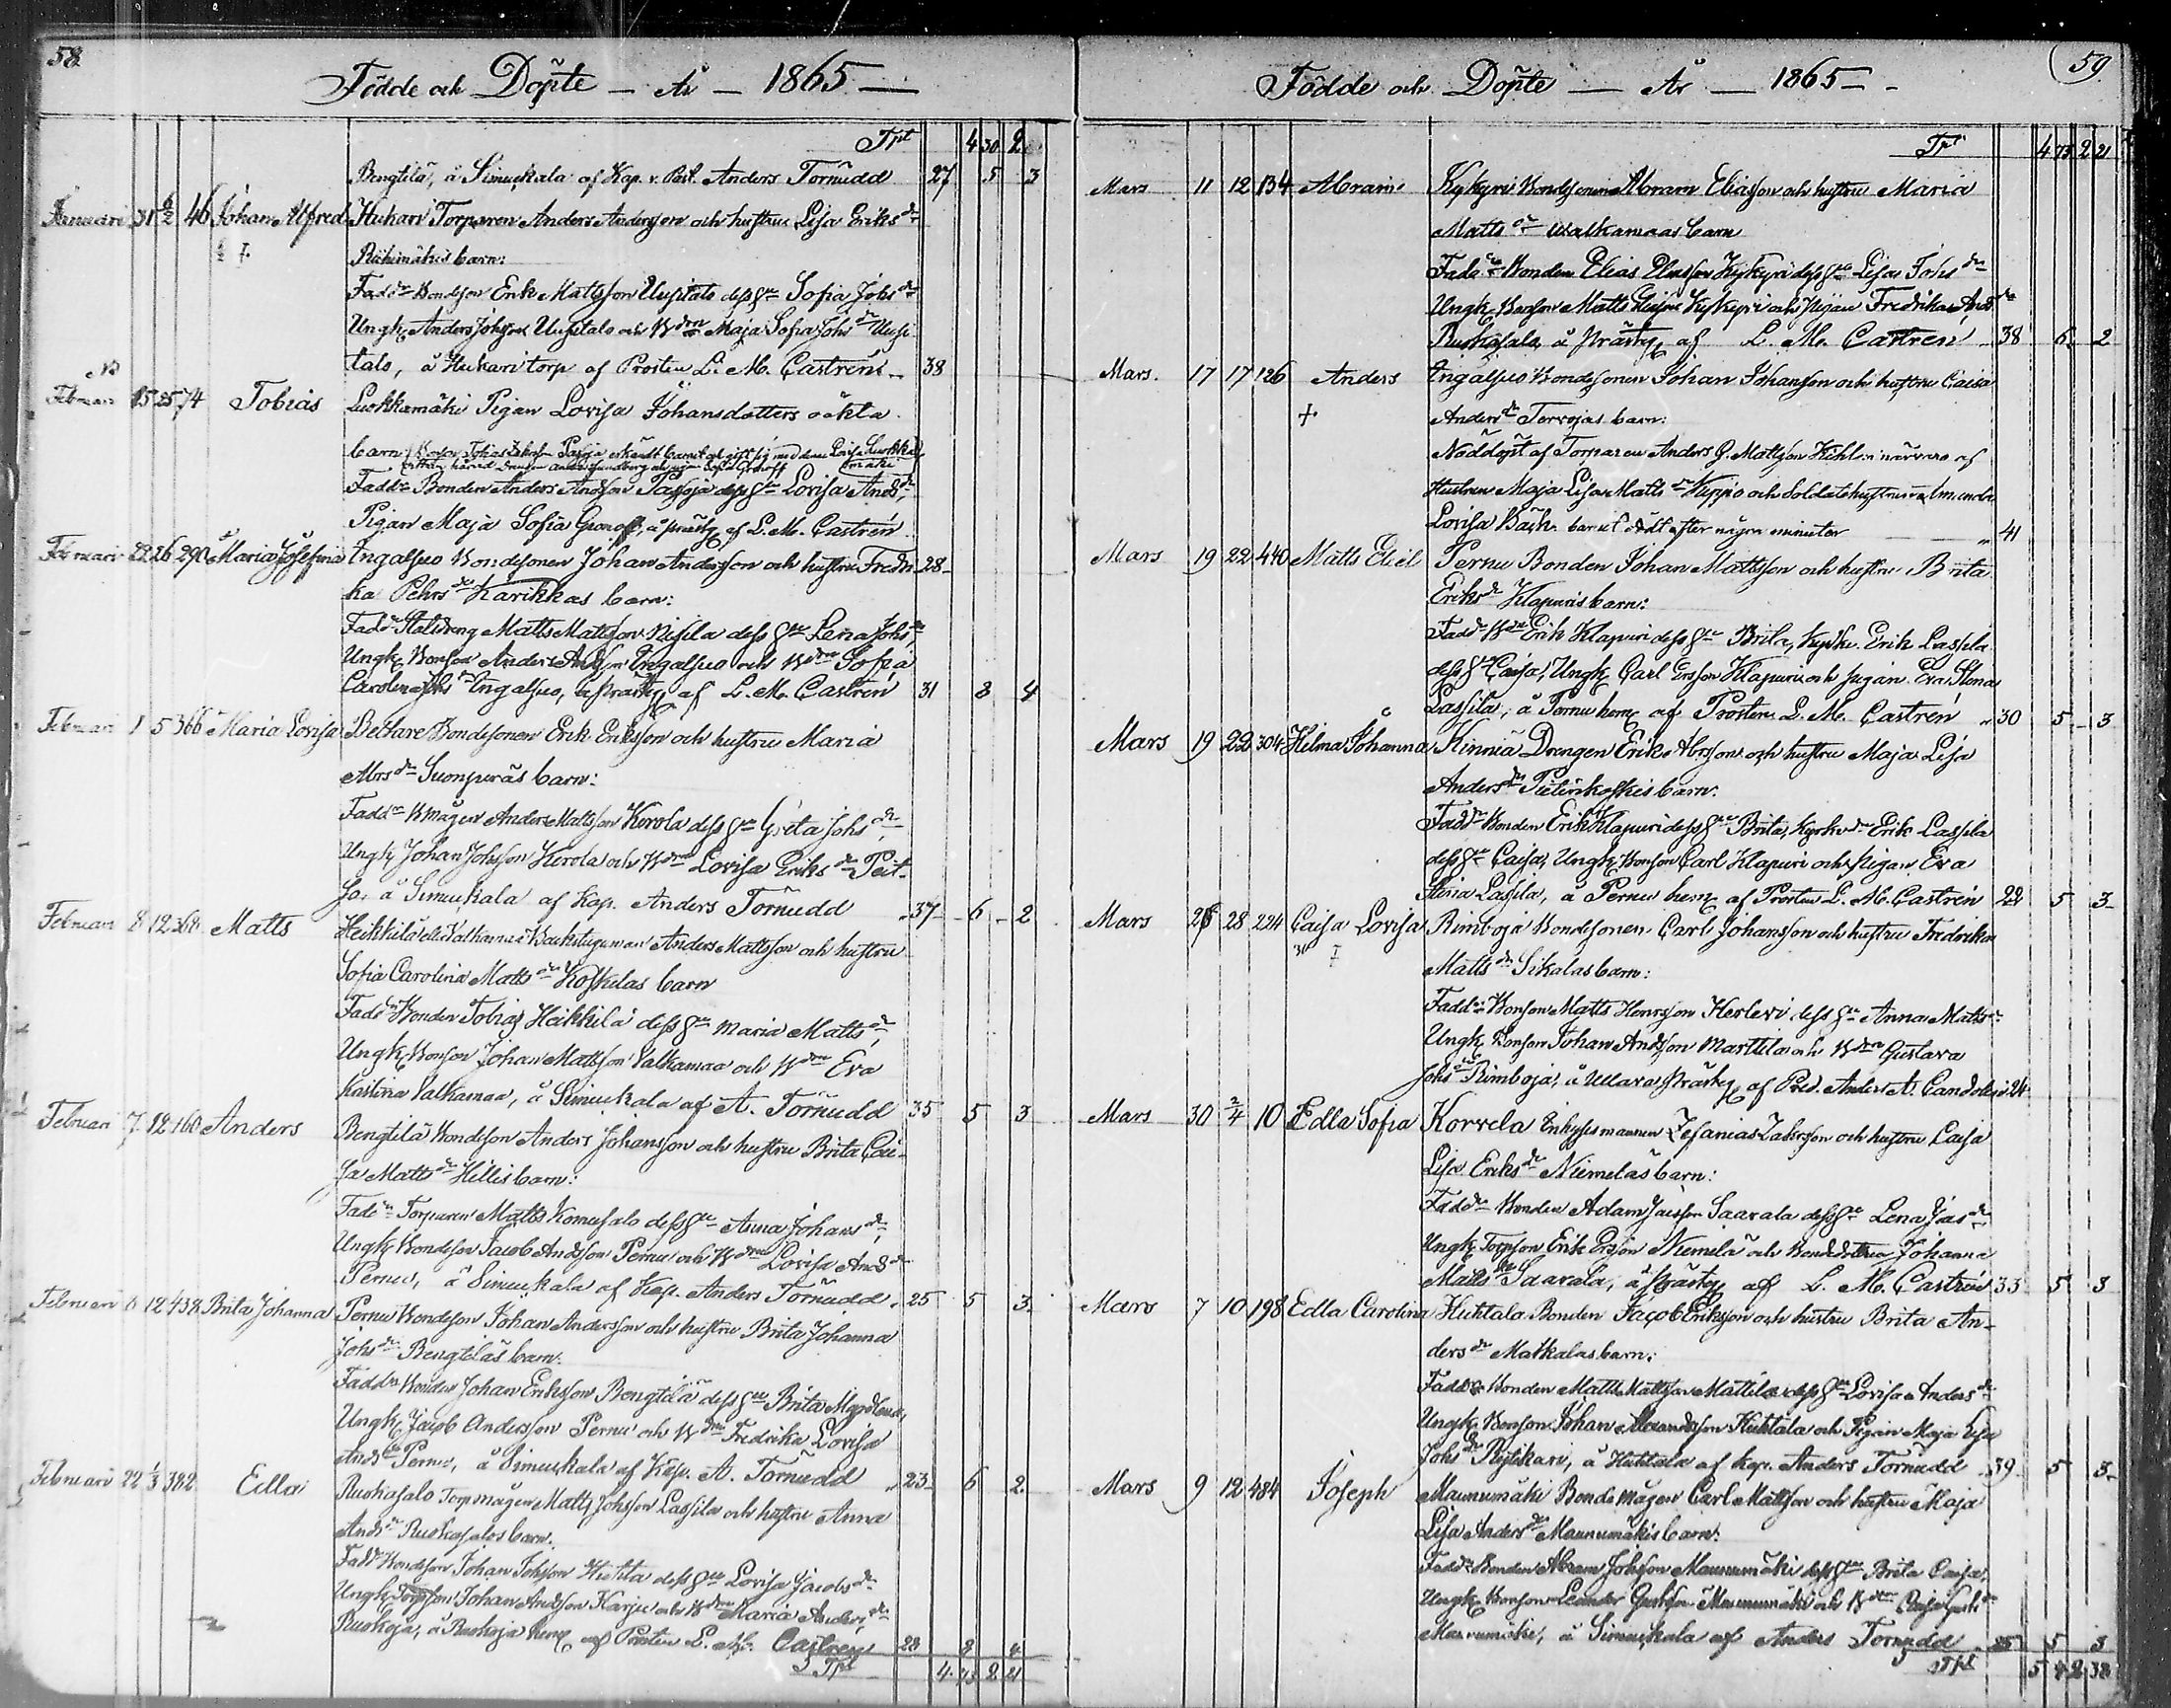 58
Födde och Döpte — År — 1865 —
Trpt 4 30 2
Bengtilä, å Simuckala af Kap. v. Past. Anders Törnudd 27 5 3
Januari 31 6/2 46 Johan Alfred Huhari Torparen Anders Andersson och hustru Lisa Eriksdr
Riihimäkis barn:
Faddr Bondson Erik Mattsson Uusitalo dess hu Sofia Johsdr
Ungk. Anders Johsson Uusitalo och Bdrn Maja Sofia Johsdr Uusi-
talo, å Huhari torp af Prosten L. M. Castrén 38
Februari 15 25 74 Tobias Luokkamäki Pigan Lovisa Johansdotters oäkta
barn
Faddr Bonden Anders Andsson Pasoja dess hu Lovisa Andsdr,
Pigan Maja Sofia Gronoff, å prästg. af L. M. Castrén 28
Februari 22 26 290 Maria Josefina Ingalsuo Bondesonen Johan Andersson och hustru Fredri-
ka Pehrsdr Karikkas barn:
Faddr Matts Mattsson Nisula dess hu Lena Johsdr,
Ungk. Bonson Anders Andson Ingalsuo och Bdrn Sofia
Carolina Johsdr Ingalsuo, å prästg af L. M. Castrén 31 8 4
Februari 1 5 366 Maria Lovisa Beltare Bondesonen Erik Eriksson och hustru Maria
Abrsdr Suonperäs barn:
Faddr Bmågen Anders Mattsson Kerola dess hu Greta Johsdr,
Ungk Johan Johsson Kerola och Bdrn Lovisa Eriksdr Peit-
so, å Simuckala af Kap. Anders Törnudd 37 6 2
Februari 8 12 368 Matts Heikkilä Valkamaa Backstuguman Anders Mattsson och hustru
Sofia Carolina Mattsdr Koskelas barn
Faddr Bonden Tobias Heikkilä dess hu Maria Mattsdr,
Ungk. Bonson Johan Mattsson Valkamaa och Bdrn Eva
Kaisrina Valkamaa, å Simuckala af A. Törnudd 35 5 3
Februari 7 12 160 Anders Bengtilä Bondson Anders Johansson och hustru Brita Cai-
sa Mattsdr Hillis barn:
Faddr Torparen Matts Komusalo dess hu Anna Johansdr,
Ungk. Bondson Jacob Andsson Pernu och Bdrn Lovisa Andsdr
Pernu, å Simuckala af Kap. Anders Törnudd 25 5 3
Februari 6 12 438 Brita Johanna Pernu Bondson Johan Andersson och hustru Brita Johanna
Johsdr Bengtiläs barn.
Faddr Bonden Johan Eriksson Bengtilä dess hu Brita Magdlena,
Ungk. Jacob Andersson Pernu och Bdrn Fredrika Lovisa
Andsdr Pernu, å Simuckala af Kap. A. Törnudd 23 6 2
Februari 22 1/3 382 Edla Ruokasalo Torpmågen Matts Johsson Lassila och hustru Anna
Andsdr Ruokasalos barn.
Faddr Bondson Johan Johsson Hietila dess hu Lovisa Jacobsdr
Ungk. Torpson Johan Andsson Karjue och Bdrn Maria Andersdr
Ruokoja, å Ruokoja hemg af Prosten L. M. Castren 28 8 4
Trpt 4 73 2 21
59
Födde och Döpte — År — 1865 —
Trpt 4 73 2 21
Mars 11 12 134 Abram Kykyri Bondsonen Abram Eliasson och hustru Maria
Mattsdr Walkamaas barn
Faddr Bonden Elias Eliasson Kykyri dess hu Lisa Johsdr
Ungk. Bonson Matts Kykyri och Pigan Fredrika Andsdr
Ruokasalo, å Prästg af L. M. Castrén 38 6 2
Mars. 17 17 126 Anders Ingalsuo Bondesonen Johan Johansson och hustru Caisa
Andersdr Tervojas barn:
Nöddöpt af Torparen Anders G. Mattsson Kehlin närvaro af
Hustrun Maja Lisa Mattsdr Keppo och Soldatehustrun
Lovisa Bäck. barnet dödt efter några minuter 41
Mars 19 22 440 Matts Eliel Pernu Bonden Johan Mattsson och hustru Brita
Eriksdr Klapuris barn:
Faddr Bdn Erik Klapuri dess hu Brita, Erik Lassila
dess hu Caisa, Ungk Carl Ersson Klapuri och pigan Eva Stina
Lassila, å Pernu hemg af Prosten L. M. Castrén 30 5 3
Mars 19 22 304 Hilma Johanna Kinniä Drengen Erik Abrsson och hustru Maja Lisa
Andersdr Pietarikoskis barn.
Faddr Bonden Erik Klapuri dess hu Brita, Erik Lassila
dess hu Caisa, Ungk Bonson Carl Klapuri och pigan Eva
Stina Lassila, å Pernu hemg af Prosten L. M. Castrén 22 5 3
Mars 26 28 224 Caisa Lovisa Rimboja Bondesonen Carl Johansson och hustru Fredrika
Mattsdr Sikalas barn:
Faddr Bonson Matts Henrsson Herlevi dess hu Anna Mattsdr
Ungk. Bonson Johan Andsson Marttila och Bdrn Gustava
Johsdr Rimboja, å Ullava prästg af Pred. Anders A. Candolin 24
Mars 30 2/4 10 Edla Sofia Korvela Inhysesmannen Zefanias Zakrsson och hustru Caisa
Lisa Eriksdr Niemeläs barn:
Faddr Bonden Adam Saarala dess hu Lena
Ungk. Torpson Erik Ersson Niemelä och Bondedottren Johanna
Mattsdr Saarala, å prästg af L. M. Castrén 33 5 3
Mars 7 10 198 Edla Carolina Huhtala Bonden Jacob Eriksson och hustru Brita An-
dersdr Matkalas barn:
Faddr Bonden Matts Mattsson Mattila dess hu Lovisa Andersdr
Ungk. Bonson Johan Alexandsson Huhtala och Pigan Maja Lisa
Johsdr Ryhikari, å Huhtala af Kap. Anders Törnudd 39 5 3
Mars 9 12 484 Joseph Maunumäki Bondemågen Carl Mattsson och hustru Maja
Lisa Andersdr Maunumäkis barn:
Faddr Bonden Abram Johsson Maunumäki dess hu Brita Caisa,
Ungk. Bonson Leander Maunumäki och Bdrn Caisa
Maunumäki, å Simuckala af Anders Törnudd 25 5 3
Trpt 5 4 2 38